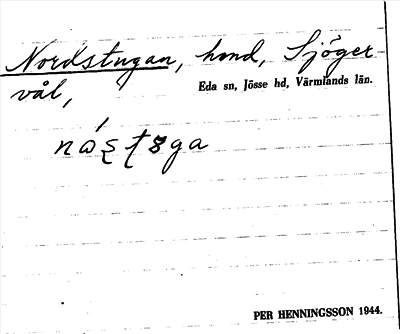 Nordstugan, hmd, Sjöger-
vål,
Eda sn, Jösse hd, Värmlands län.
PER HENNINGSSON 1944.